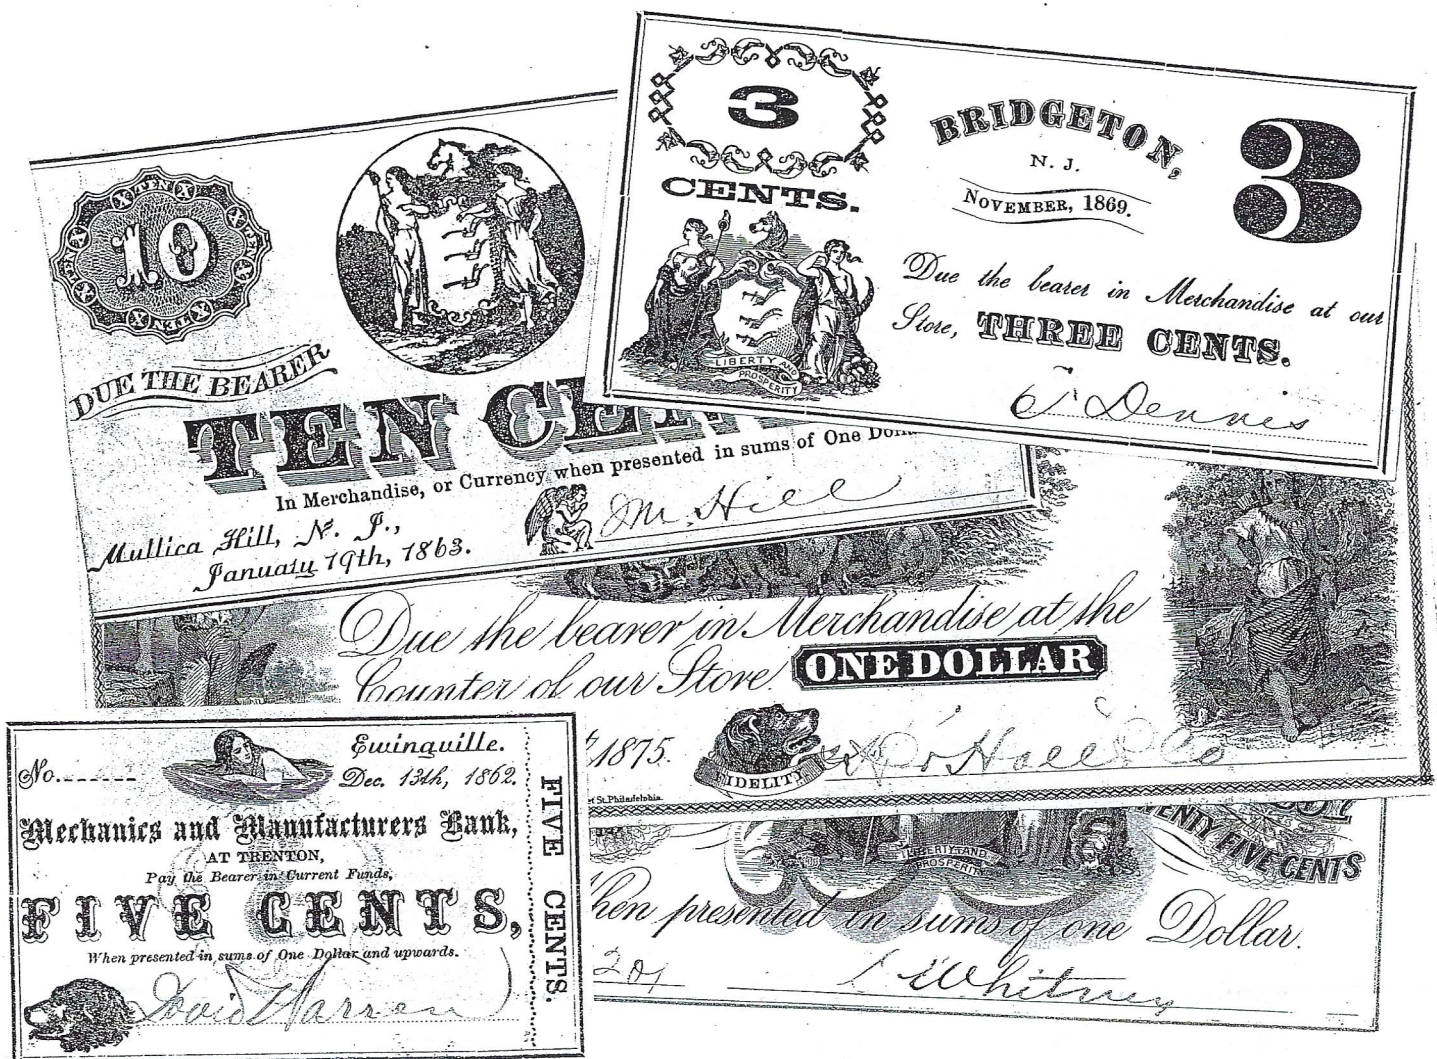 3
CENTS.
LIBERTY AND
PROSPERITY
BRIDGETON,
N. J.
NOVEMBER, 1869.
3
Due the bearer in Merchandise at our
Store, THREE CENTS.
Dennis
X TEN X
10
DUE THE BEARER
TEN CEN
In Merchandise, or Currency when presented in sums of One Dol
Mullica Hill, N. J.,
January 19th, 1863.
M. Hill
Due the bearer in Merchandise at the
Counter of our Store. ONE DOLLAR
1875.
FIDELITY
Hall & Co
St. Philadelphia.
No.
Ewingville.
Dec. 13th, 1862.
Mechanics and Manufacturers Bank,
AT TRENTON,
Pay the Bearer in Current Funds,
FIVE CENTS,
When presented in sums of One Dollar and upwards.
David Warren
FIVE CENTS.
LIBERTY AND
PROSPERITY
ENTY FIVE CENTS
hen presented in sums of one Dollar.
201
Whitney